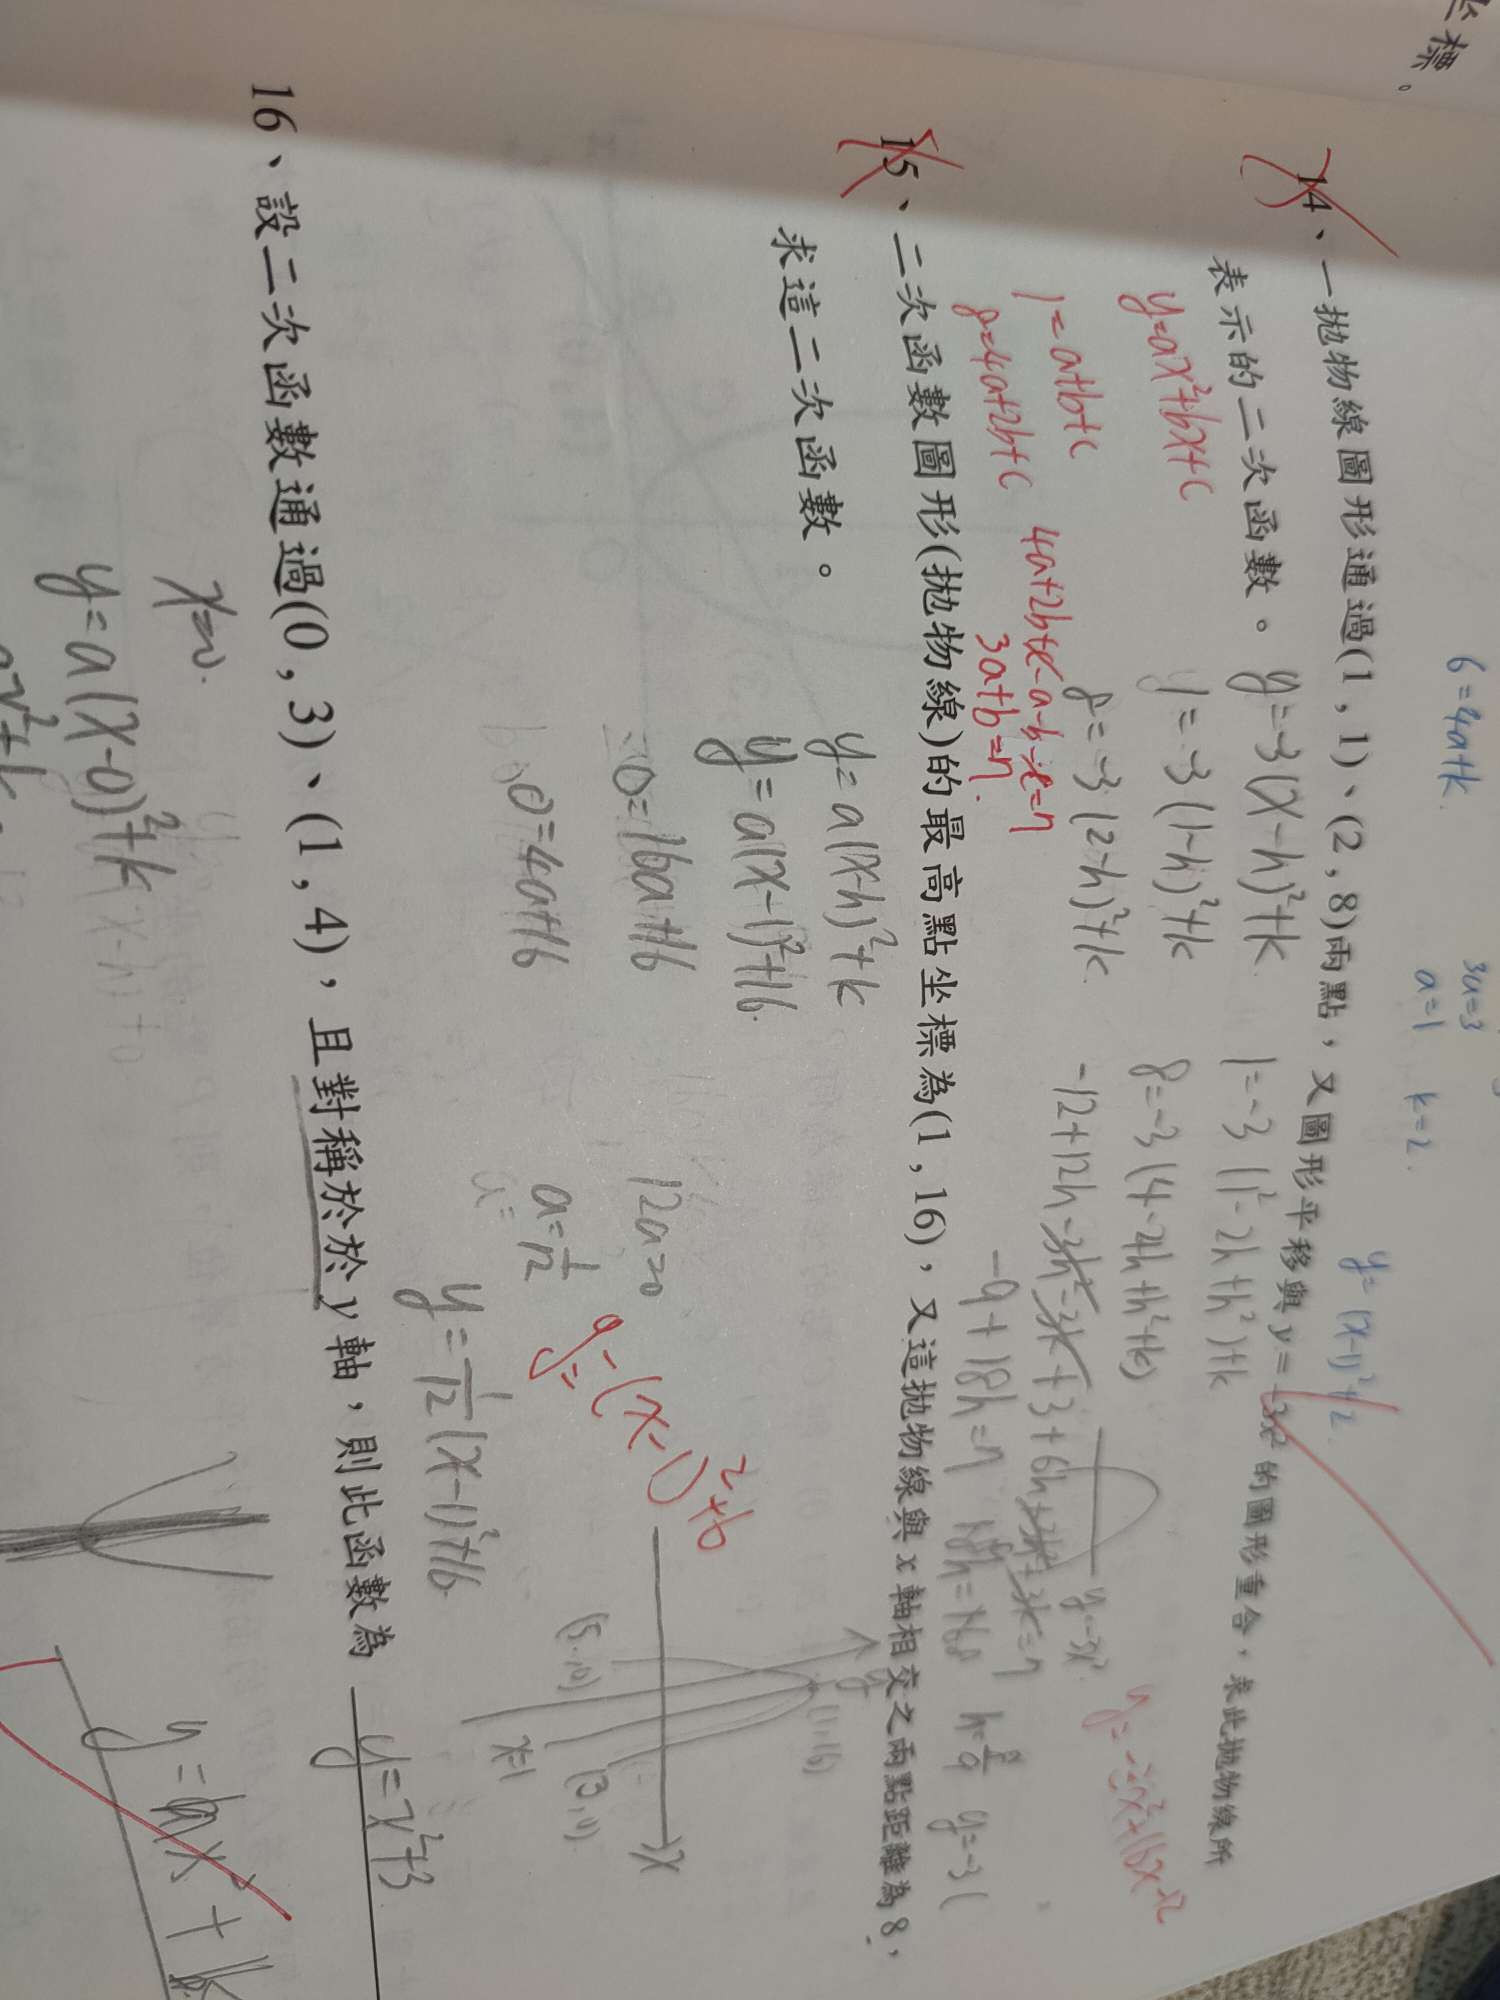 坐標。
6=4a+k
3a=3
a=1 k=2.
y=(x-1)²+2
14、一拋物線圖形通過(1, 1)、(2, 8)兩點，又圖形平移與 y=-3x² 的圖形重合，求此拋物線所
表示的二次函數。
y=-3(x-h)²+k
1=-3(1-h)²+k
8=-3(2-h)²+k
1=-3(1²-2h+h²)+k
8=-3(4-4h+h²+k)
-12+12h-3h²-3k+3+6h+3h²+3k=7
-9+18h=7
y=-3x²
y=ax²+bx+c
1=a+b+c
8=4a+2b+c
4a+2b+c-a-b-c=7
3a+b=7
y=-3x²+16x-12
y=-3(
15、二次函數圖形(拋物線)的最高點坐標為(1, 16)，又這拋物線與 x 軸相交之兩點距離為 8，
求這二次函數。
y=a(x-h)²+k
y=a(x-1)²+16
0=16a+16
0=4a+16
12a=0
a=1/12
y=1/12(x-1)²+16
y=-(x-1)²+16
y
(1,16)
x
x=1
16、設二次函數通過(0, 3)、(1, 4)，且對稱於於 y 軸，則此函數為 y=x²+3
x=0.
y=a(x-0)²+k